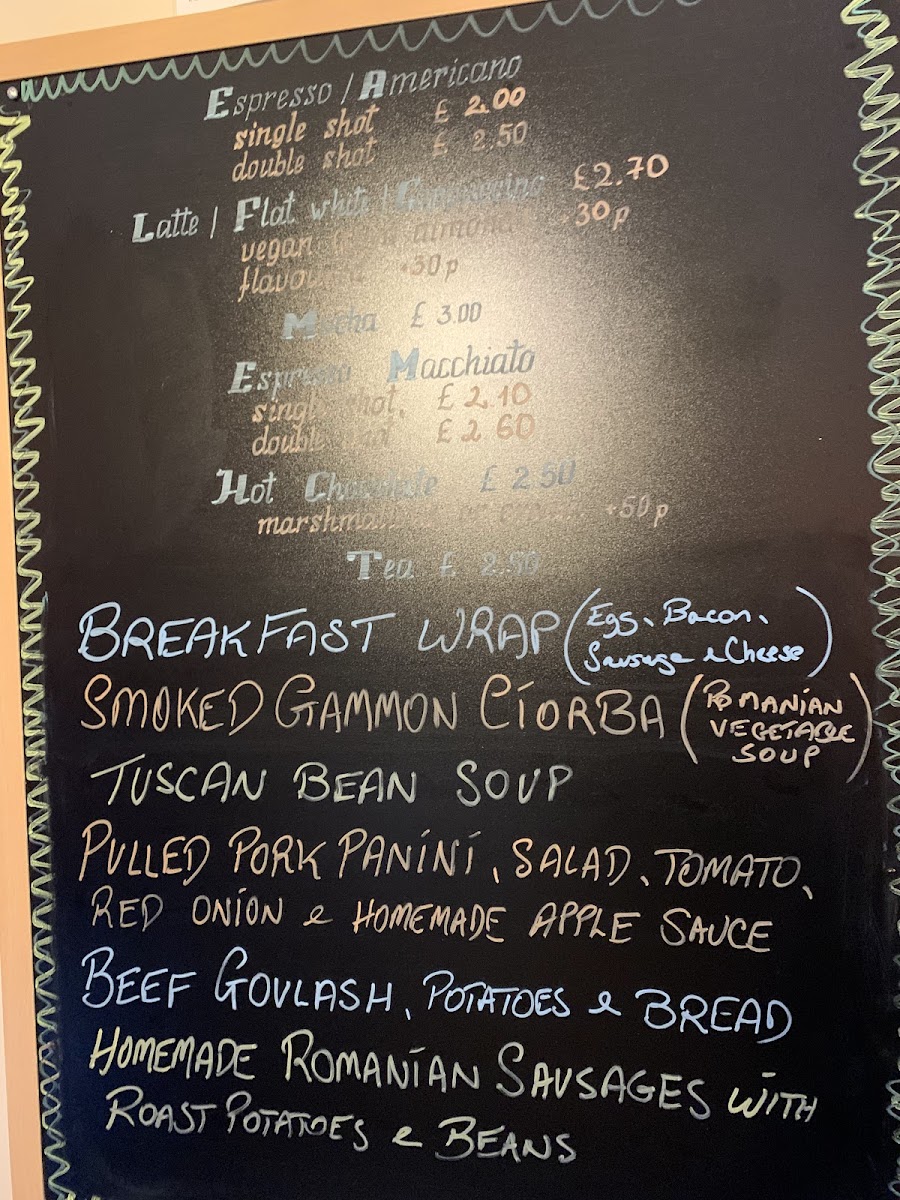 Espresso / Americano
single shot £ 2.00
double shot £ 2.50
Latte / Flat white / Cappuccino £2.70
vegan almond +30p
+30p
Mocha £ 3.00
Espresso Macchiato
single shot, £ 2.10
double shot £ 2 60
Hot Chocolate £ 2 50
+50p
Tea £ 2.50
BREAKFAST WRAP (Eggs, Bacon,
Sausage & Cheese)
SMOKED GAMMON CIORBA (ROMANIAN
VEGETABLE
SOUP)
TUSCAN BEAN SOUP
PULLED PORK PANINI, SALAD, TOMATO,
RED ONION & HOMEMADE APPLE SAUCE
BEEF GOULASH, POTATOES & BREAD
HOMEMADE ROMANIAN SAUSAGES WITH
ROAST POTATOES & BEANS